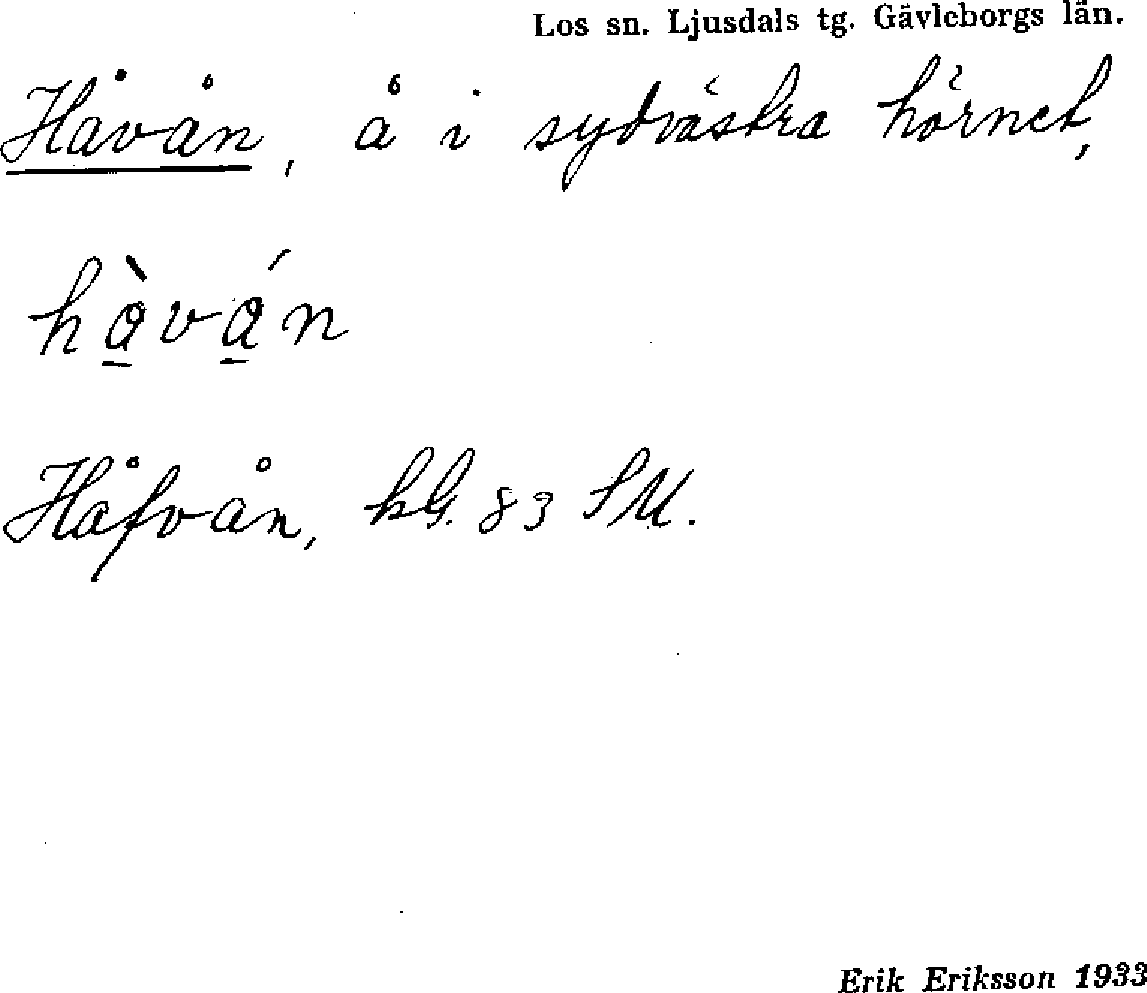 Los sn. Ljusdals tg. Gävleborgs län.
Håvån, å i sydvästra hörnet,
hàván
Håfvån, kG. 83 SM.
Erik Eriksson 1933